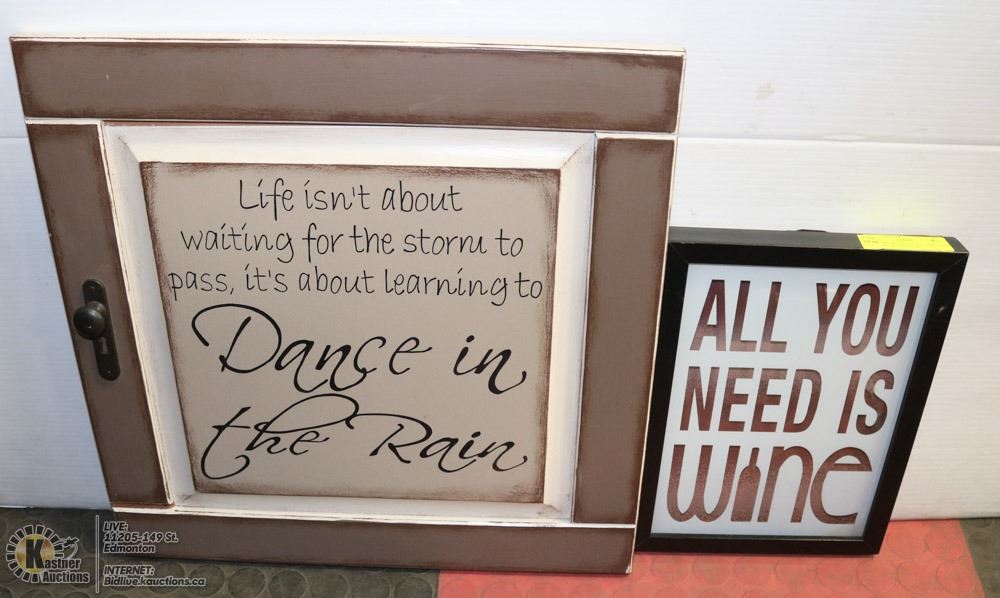 Life isn't about
waiting for the storm to
pass, it's about learning to
Dance in
the Rain
ALL YOU
NEED IS
WiNe
K
Kastner
Auctions
LIVE:
11205-149 St.
Edmonton
INTERNET:
Bidlive.kauctions.ca